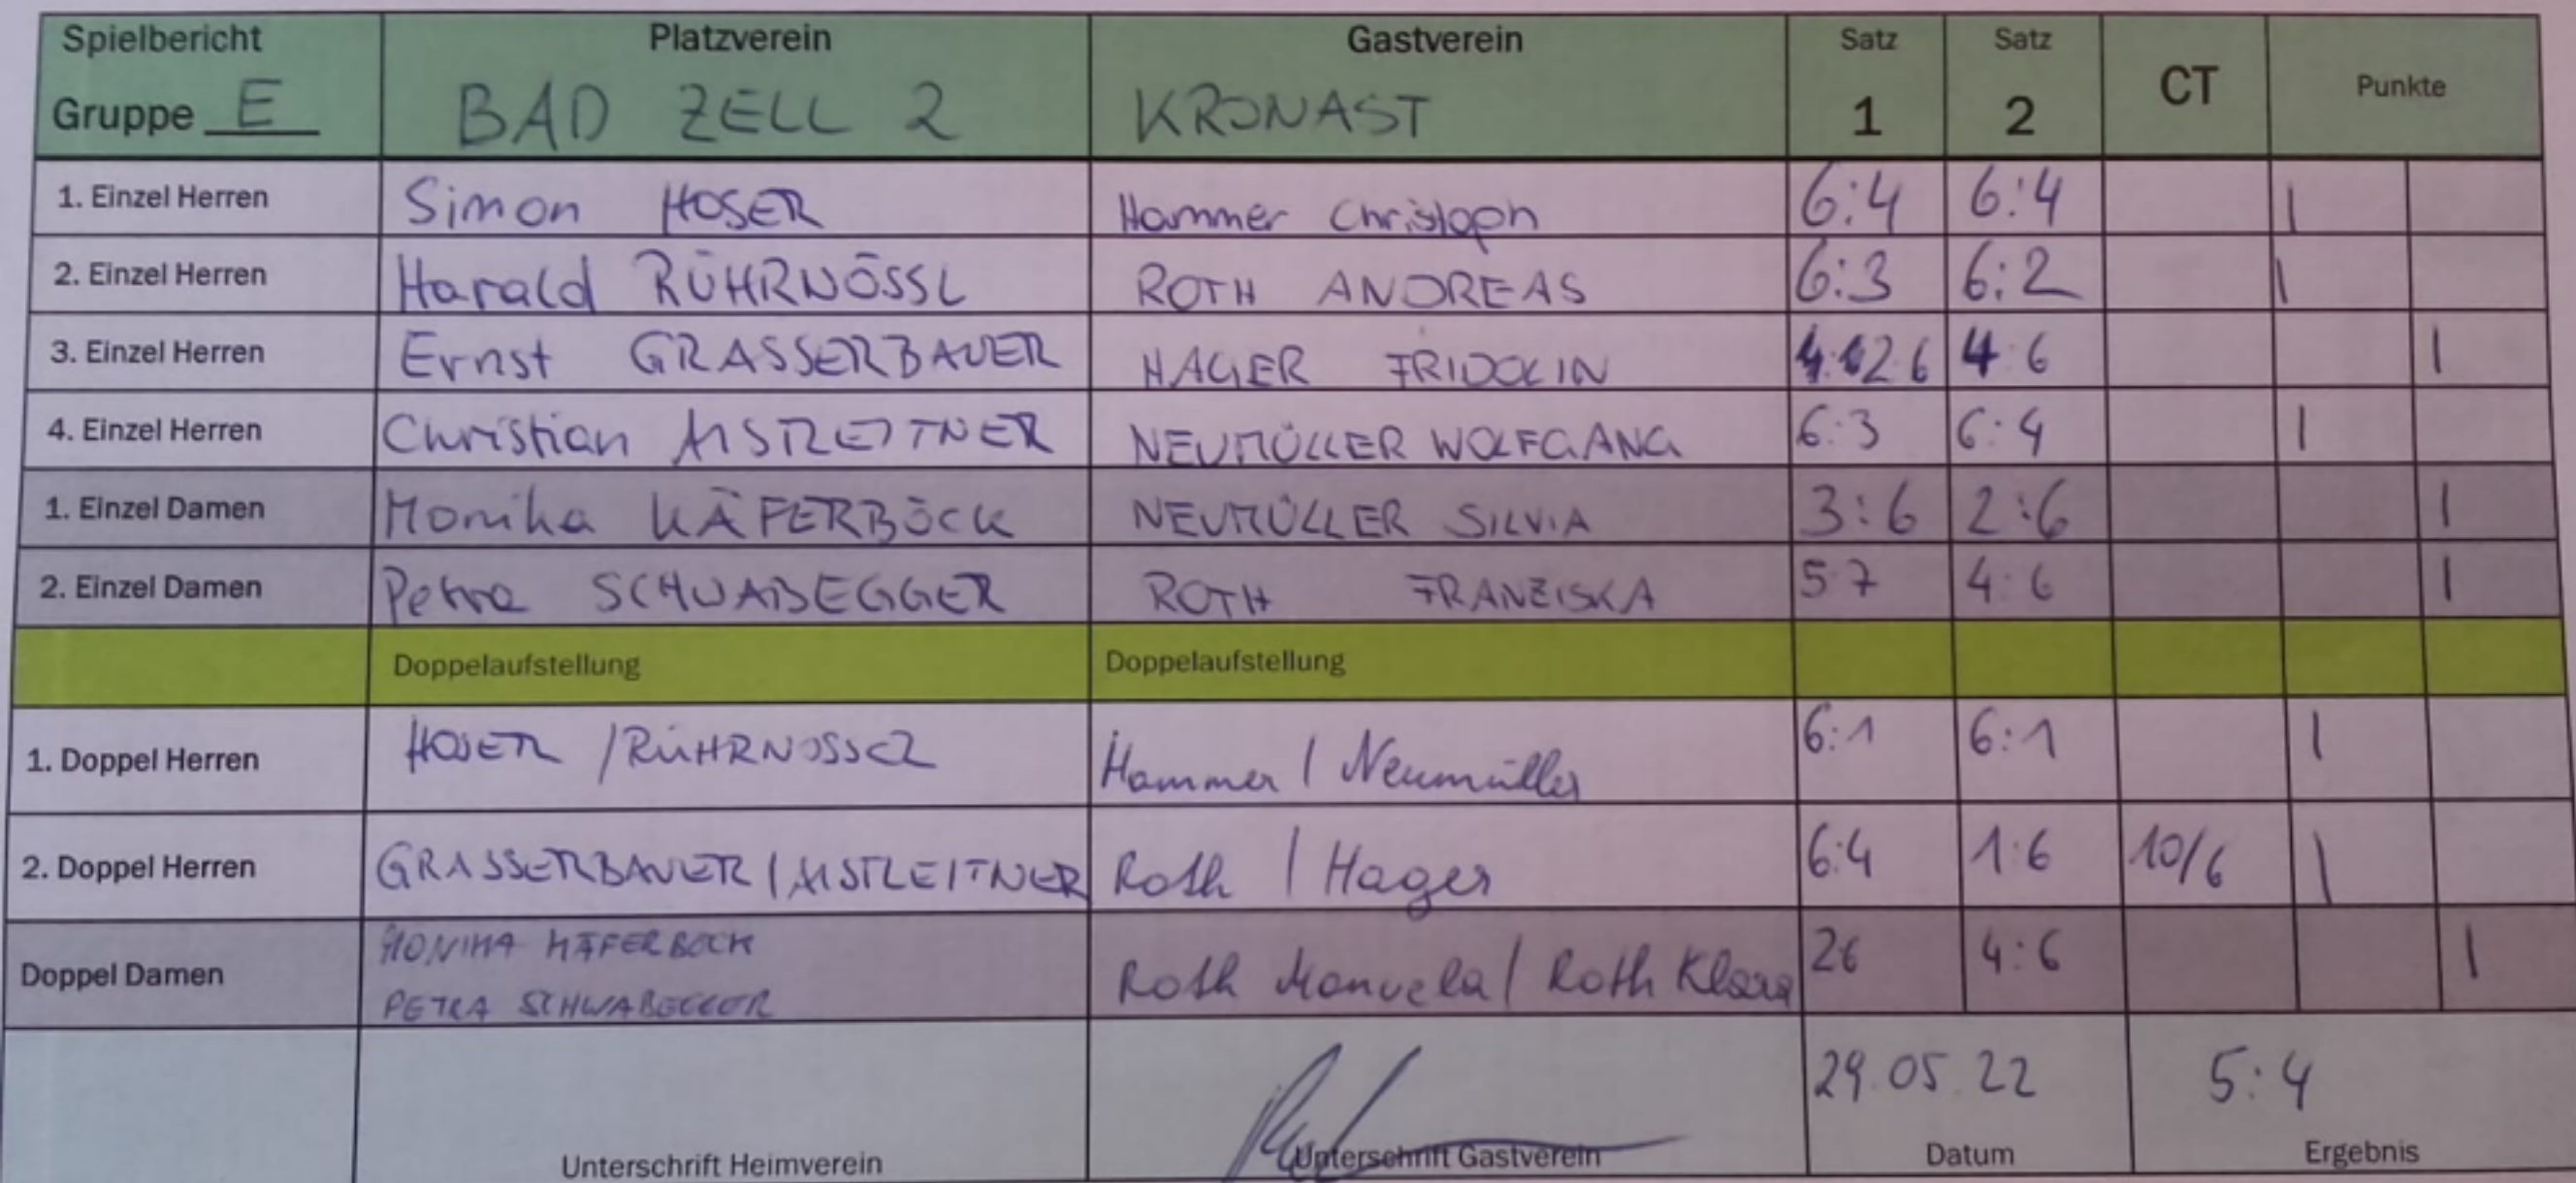 Spielbericht Platzverein Gastverein Satz Satz CT Punkte
Gruppe E BAD ZELL 2 KRONAST 1 2
1. Einzel Herren Simon HOSER Hammer Christoph 6:4 6:4 |
2. Einzel Herren Harald RÜHRNÖSSL ROTH ANDREAS 6:3 6:2 |
3. Einzel Herren Ernst GRASSERBAUER HAGER FRIDOLIN 2 6 4 6 |
4. Einzel Herren Christian AISTLEITNER NEUMÜLLER WOLFGANG 6:3 6:4 |
1. Einzel Damen Monika KÄFERBÖCK NEUMÜLLER SILVIA 3:6 2:6 |
2. Einzel Damen Petra SCHWABEGGER ROTH FRANZISKA 5 7 4:6 |
Doppelaufstellung Doppelaufstellung
1. Doppel Herren HOSER / RÜHRNÖSSL Hammer / Neumüller 6:1 6:1 |
2. Doppel Herren GRASSERBAUER / AISTLEITNER Roth / Hager 6:4 1:6 10/6 |
Doppel Damen MONIKA KÄFERBÖCK
PETRA SCHWABEGGER Roth Manuela / Roth Klara 26 4:6 |
29.05.22 5:4
Unterschrift Heimverein Unterschrift Gastverein Datum Ergebnis